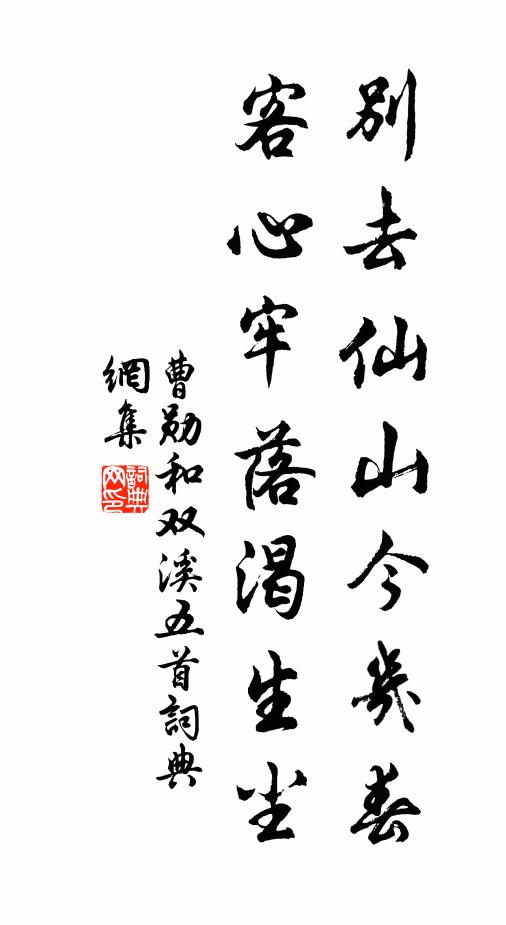 別去仙山今幾春
客心牢落渴生尘
曹勋和双溪五首詞典
網集
詞典
网印